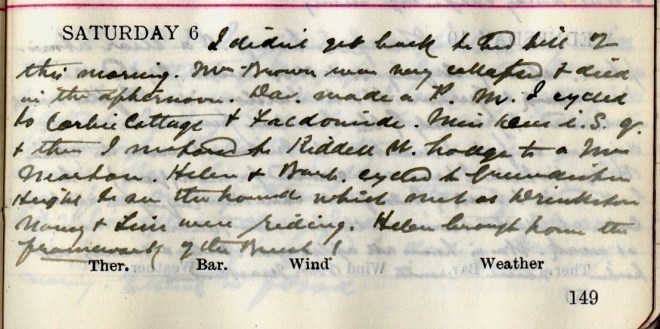 SATURDAY 6 I didn't get back to bed till 7
this morning. Mrs Brown was very collapsed & died
in the afternoon. Dav. made a P. M. I cycled
to Corbie Cottage & Miss S. G.
& then I motored to Riddell M. Lodge to a Mrs
Helen & Barb. cycled to
Height to see the hounds which met at
Nancy & were riding. Helen brought home the
framework of the Brush!
Ther. Bar. Wind Weather
149